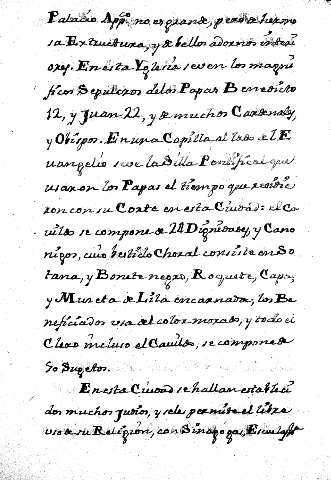 Palacio Appo. no es grande, pero de hermo
sa Extructura, y de bellos adornos interi
ores. En esta Yglesia se ven los magni
ficos Sepulcros de los Papas Benedicto
12, y Juan 22, y de muchos Cardenales,
y Obispos. En una Capilla al lado del E
uangelio se ve la Silla Pontifical que
usaron los Papas el tiempo que residie
ron con su Corte en esta Ciudad: el Ca
vildo se compone de 28 Dignidades, y Cano
nigos, cuio bestido Choral consiste en So
tana, y Bonete negro, Roquete, Capa,
y Muceta de Lila encarnada; los Be
neficiados usa del color morado, y todo el
Clero incluso el Cavildo, se compone de
50 Sugetos.
En esta Ciudad se hallan estableci
dos muchos Judios, y se les permite el libre
uso de su Religion, con Sinagogas,